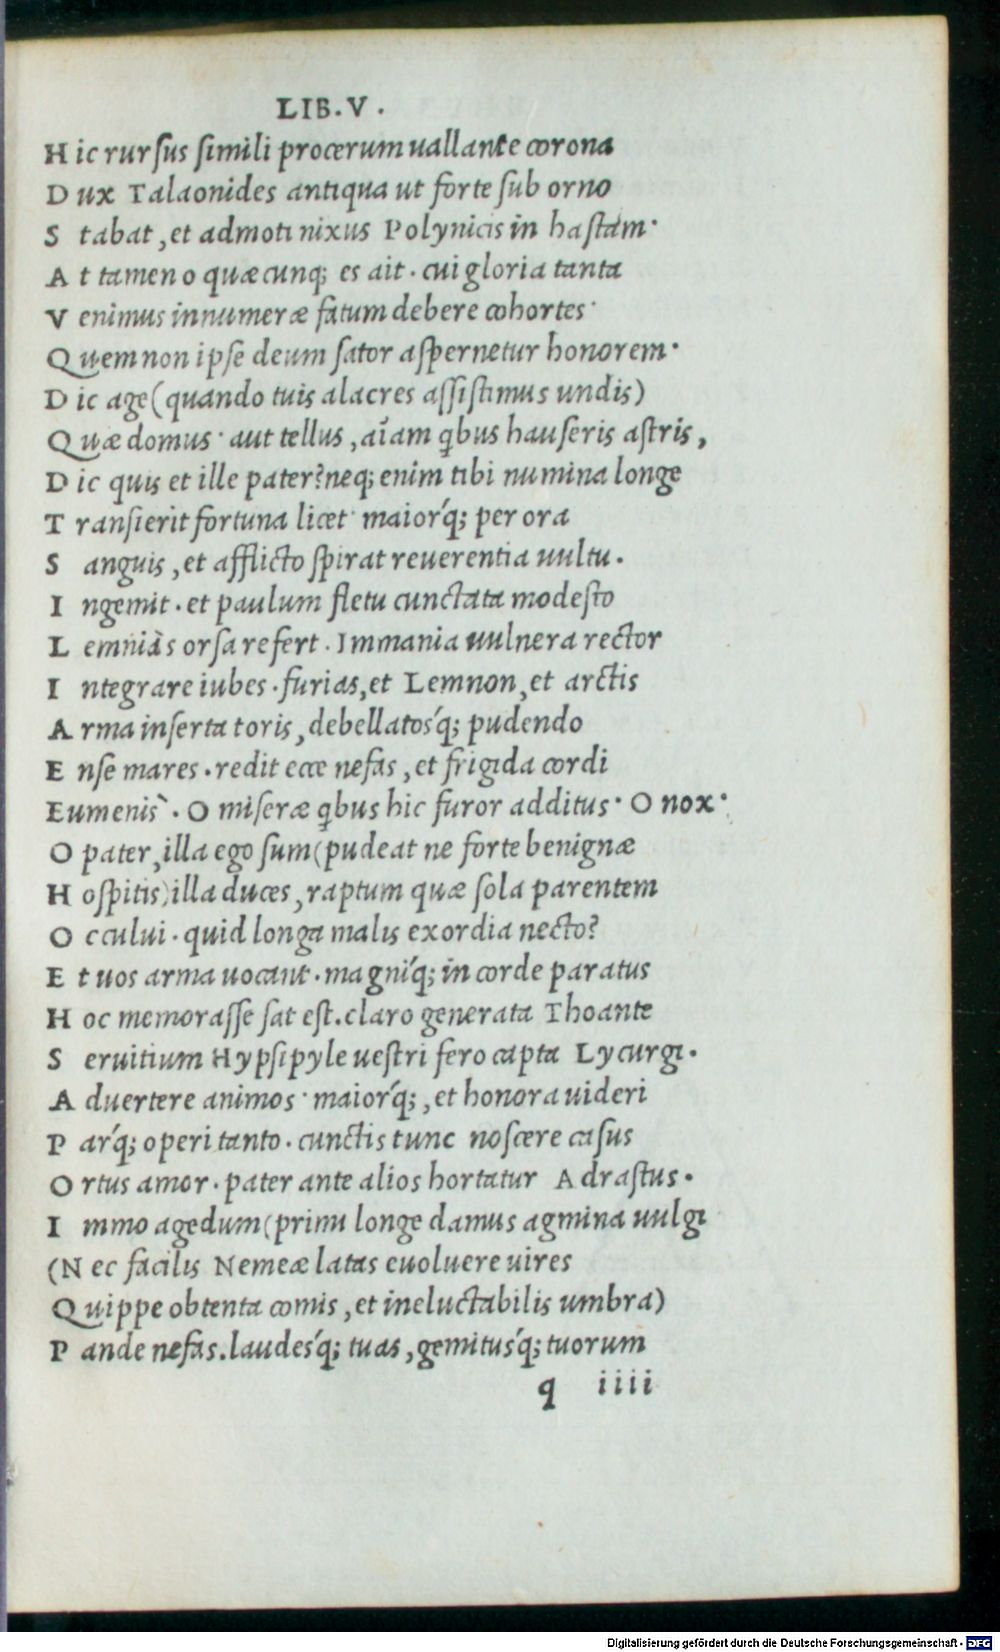 LIB.V.
H ic rursus simili procerum uallante corona
D ux Talaonides antiqua ut forte sub orno
S tabat, et admoti nixus Polynicis in hastam·
A t tamen o quæcunq; es ait. cui gloria tanta
V enimus innumeræ fatum debere cohortes·
Q uem non ipse deum sator aspernetur honorem·
D ic age(quando tuis alacres assistimus undis)
Q uæ domus· aut tellus, aīam q̄bus hauseris astris,
D ic quis et ille pater?neq; enim tibi numina longe
T ransierit fortuna licet· maior'q; per ora
S anguis, et afflicto spirat reuerentia uultu.
I ngemit. et paulum fletu cunctata modesto
L emniàs orsa refert. Immania uulnera rector
I ntegrare iubes. furias, et Lemnon, et arctis
A rma inserta toris, debellatos'q; pudendo
E nse mares. redit ecce nefas, et frigida cordi
Eumenis`. O miseræ q̄bus hic furor additus· O nox·
O pater, illa ego sum(pudeat ne forte benignæ
H ospitis)illa duces, raptum quæ sola parentem
O ccului. quid longa malis exordia necto?
E t uos arma uocant. magni'q; in corde paratus
H oc memorasse sat est. claro generata Thoante
S eruitium Hypsipyle uestri fero capta Lycurgi.
A duertere animos· maior'q;, et honora uideri
P ar'q; operi tanto. cunctis tunc noscere casus
O rtus amor. pater ante alios hortatur Adrastus.
I mmo agedum(primu longe damus agmina uulgi
(N ec facilis Nemeæ latas euoluere uires
Q uippe obtenta comis, et ineluctabilis umbra)
P ande nefas.laudes'q; tuas, gemitus'q; tuorum
q iiii
Digitalisierung gefördert durch die Deutsche Forschungsgemeinschaft - DFG